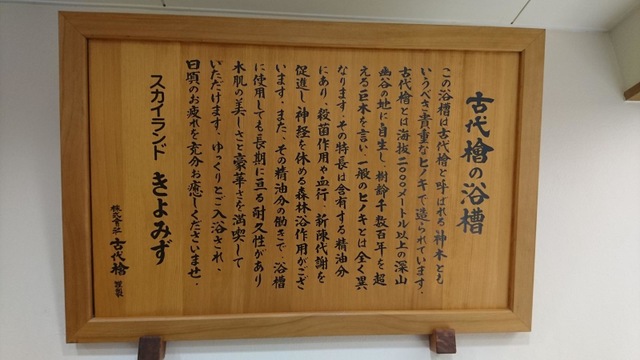 古代檜の浴槽
この浴槽は古代檜と呼ばれる神木とも
いうべき貴重なヒノキで造られています。
古代檜とは海抜二〇〇〇メートル以上の深山
幽谷の地に自生し、樹齢千数百年を超
える巨木を言い、一般のヒノキとは全く異
なります。その特長は含有する精油分
にあり、殺菌作用や血行、新陳代謝を
促進し、神経を休める森林浴作用がござ
います。また、その精油分の働きで、浴槽
に使用しても長期に亘る耐久性があり
木肌の美しさと豪華さを満喫して
いただけます。ゆっくりとご入浴され、
日頃のお疲れを充分お癒しくださいませ。
スカイランド きよみず
株式會社 古代檜 謹製